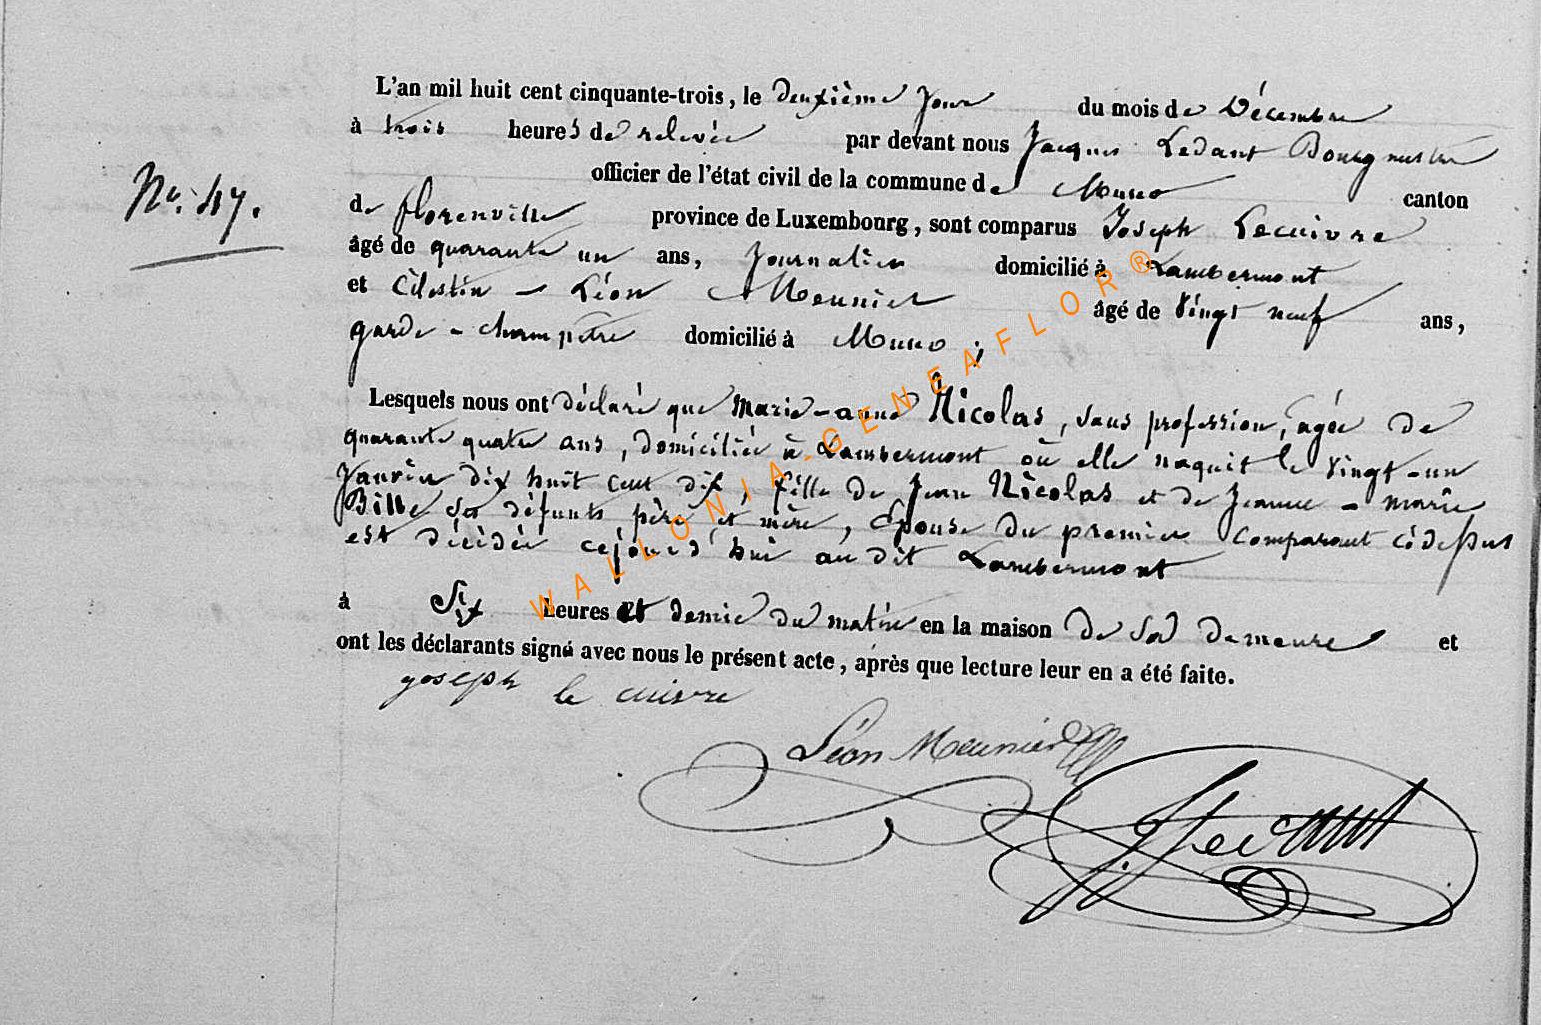 L'an mil huit cent cinquante-trois, le deuxième jour du mois de Décembre
à trois heures de relevée par devant nous Jacques Ledant Bourgmestre
officier de l'état civil de la commune de Muno canton
de florenville province de Luxembourg, sont comparus Joseph Lecuivre
N°. 47.
âgé de quarante un ans, journalier domicilié à Lambermont
et Célestin - Léon Meunier âgé de vingt neuf ans,
garde - champêtre domicilié à Muno ;
Lesquels nous ont déclaré que Marie-anne Nicolas, sans profession, agée de
quarante quatre ans, domiciliée à Lambermont où elle naquit le vingt-un
Janvier dix huit cent dix, fille de Jean Nicolas et de Jeanne - marie
Bille ses défunts père et mère, Epouse du premier comparant cidessus
est décédée cejourd'hui au dit Lambermont
à Six heures et demie du matin en la maison de sa demeure et
ont les déclarants signé avec nous le présent acte, après que lecture leur en a été faite.
joseph le cuivre
Léon Meunier
J Ledant
WALLONIA-GENEAFLOR®